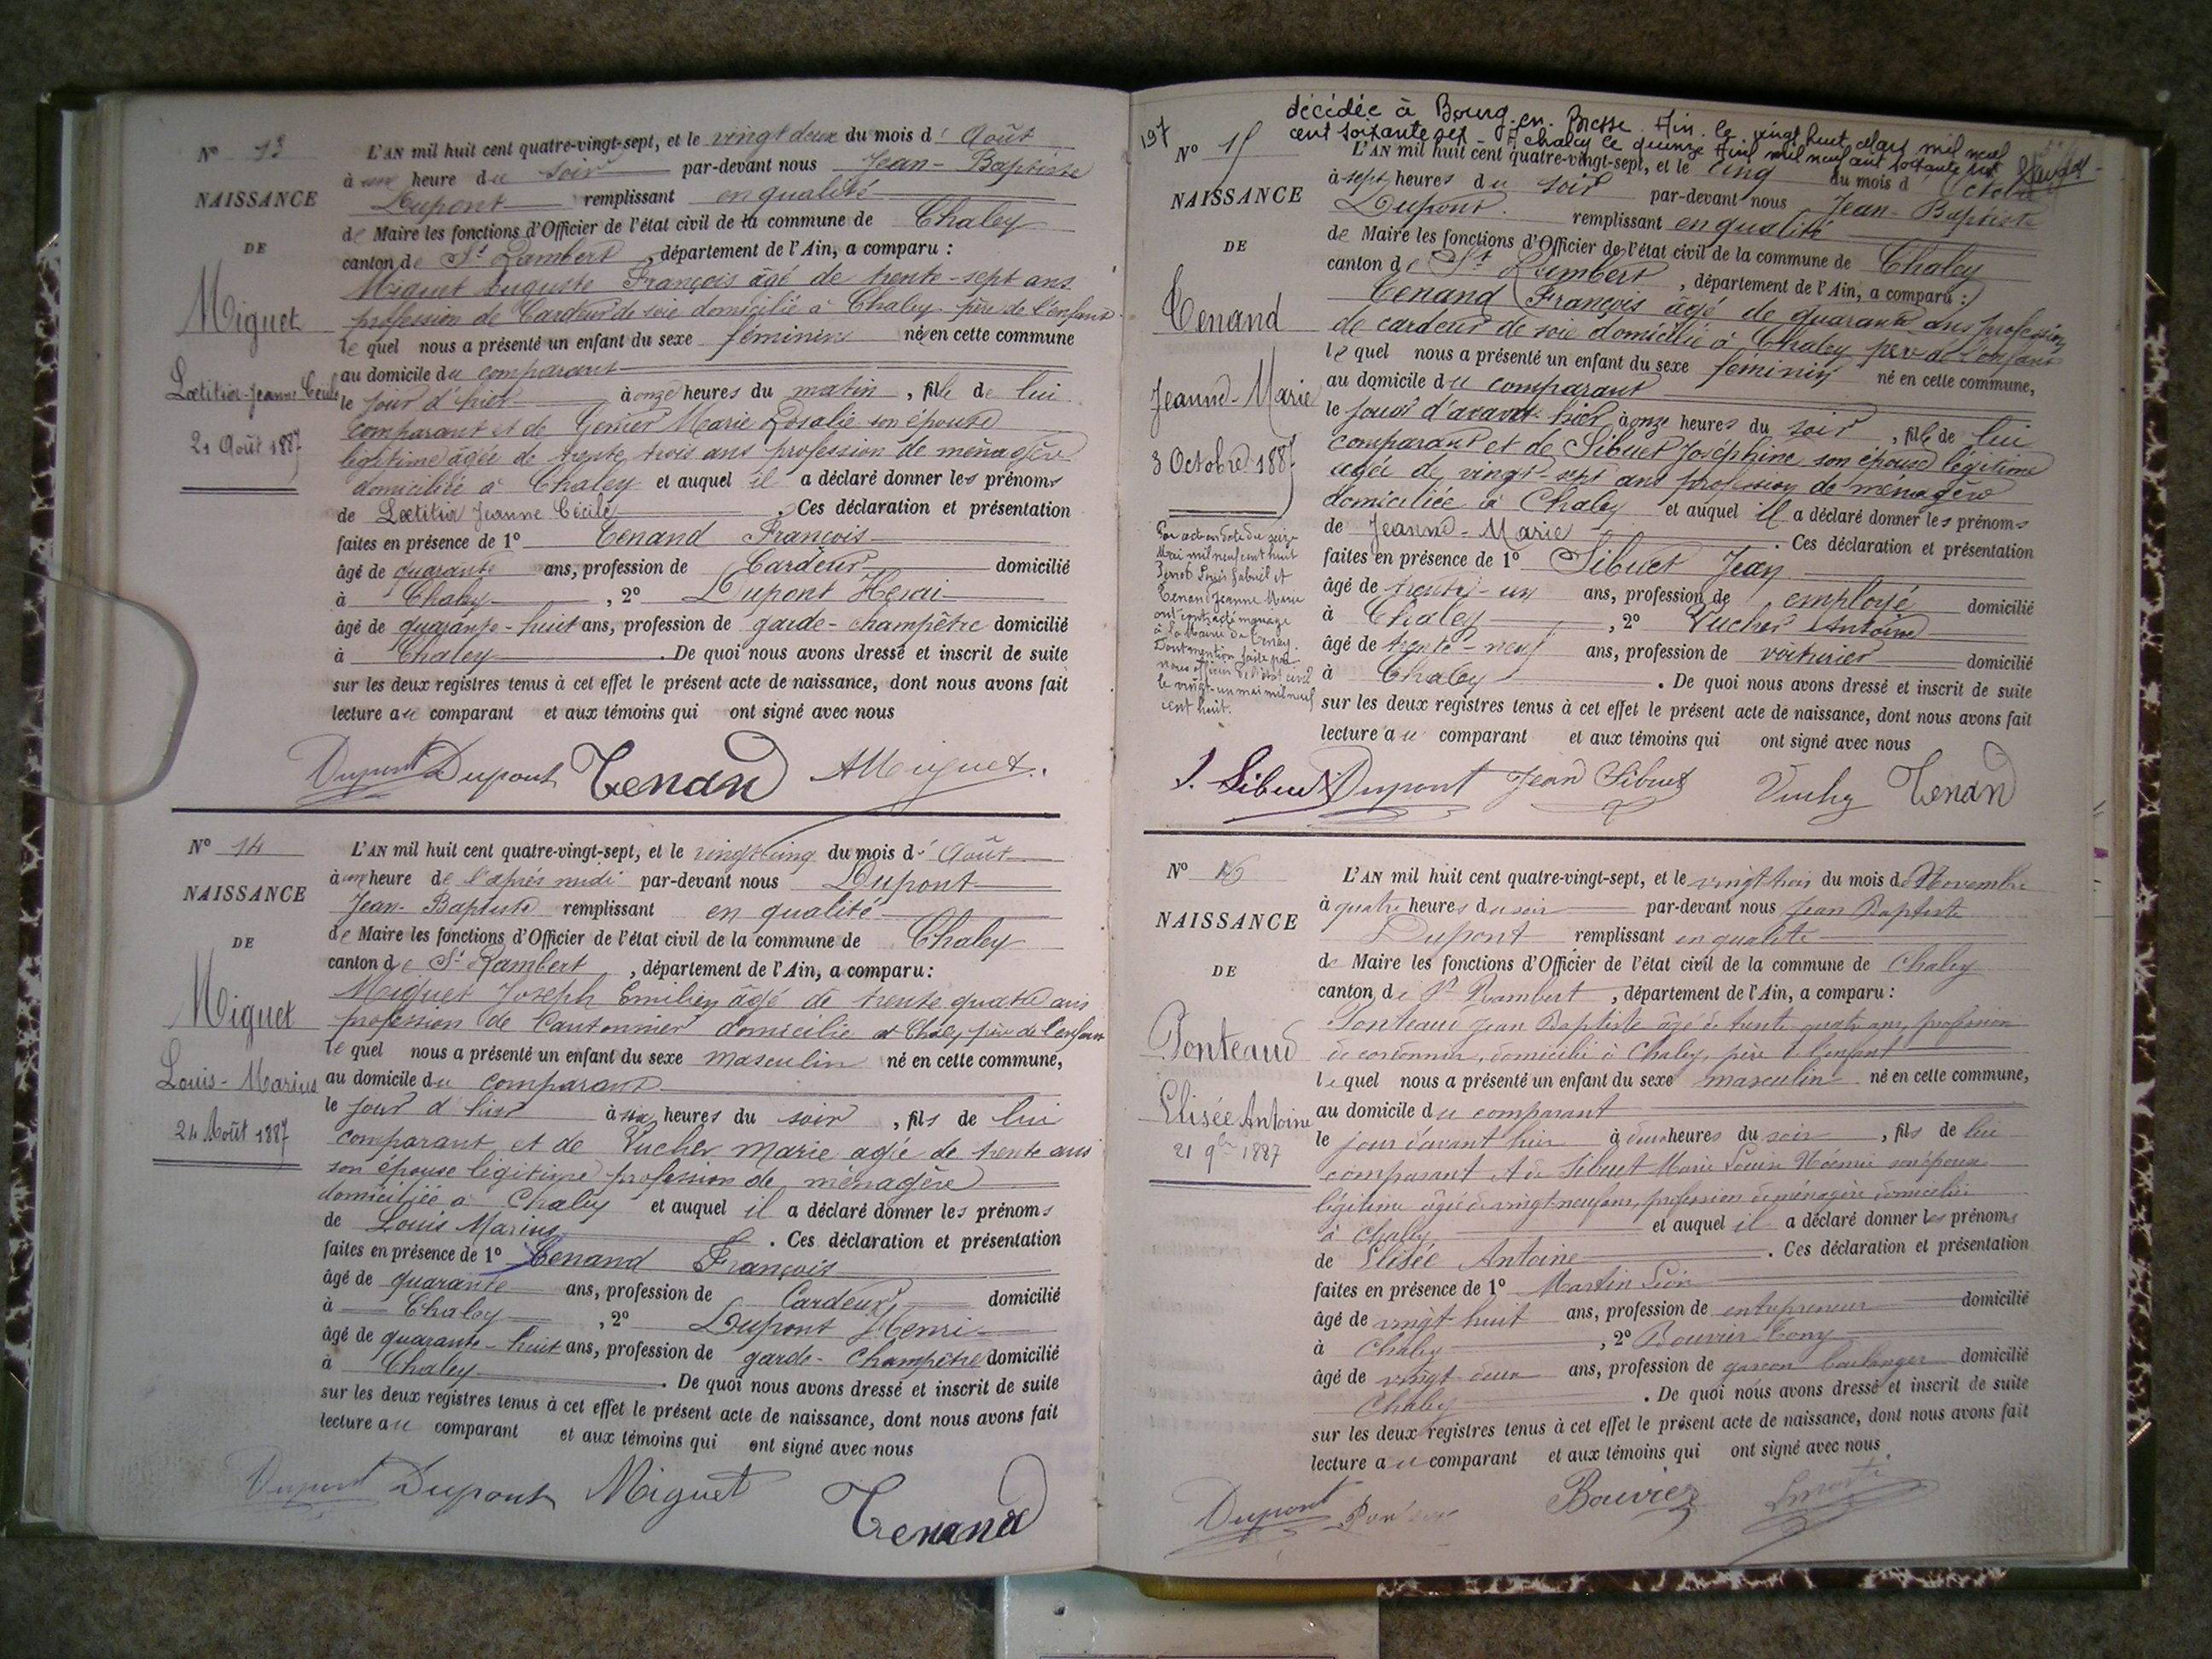 Nº 13
NAISSANCE
DE
Miguet
Lætitia-Jeanne Cécile
21 Août 1887
L'AN mil huit cent quatre-vingt-sept, et le vingt deux du mois d' Août
à une heure du soir par-devant nous Jean-Baptiste
Dupont remplissant en qualité
de Maire les fonctions d'Officier de l'état civil de la commune de Chaley
canton de St Rambert, département de l'Ain, a comparu :
Miguet Auguste François âgé de trente-sept ans
profession de Cardeur de soie domicilié à Chaley père de l'enfant
le quel nous a présenté un enfant du sexe féminin né en cette commune
au domicile du comparant
le jour d'hier à onze heures du matin, fille de lui
comparant et de Genier Marie Rosalie son épouse
légitime âgée de trente trois ans profession de ménagère
domiciliée à Chaley et auquel il a déclaré donner les prénoms
de Lætitia Jeanne Cécile. Ces déclaration et présentation
faites en présence de 1º Tenand François
âgé de quarante ans, profession de Cardeur domicilié
à Chaley, 2º Dupont Henri
âgé de quarante-huit ans, profession de garde-champêtre domicilié
à Chaley. De quoi nous avons dressé et inscrit de suite
sur les deux registres tenus à cet effet le présent acte de naissance, dont nous avons fait
lecture au comparant et aux témoins qui ont signé avec nous
Dupont Dupont Tenand AMiguet
Nº 14
NAISSANCE
DE
Miguet
Louis-Marius
24 Août 1887
L'AN mil huit cent quatre-vingt-sept, et le vingt cinq du mois d' Août
à une heure de l'après midi par-devant nous Dupont
Jean-Baptiste remplissant en qualité
de Maire les fonctions d'Officier de l'état civil de la commune de Chaley
canton de St Rambert, département de l'Ain, a comparu :
Miguet Joseph Emilien âgé de trente quatre ans
profession de Cantonnier domicilié à Chaley père de l'enfant
le quel nous a présenté un enfant du sexe masculin né en cette commune,
au domicile du comparant
le jour d'hier à six heures du soir, fils de lui
comparant et de Vucher Marie agée de trente ans
son épouse légitime profession de ménagère
domiciliée à Chaley et auquel il a déclaré donner les prénoms
de Louis Marius. Ces déclaration et présentation
faites en présence de 1º Tenand François
âgé de quarante ans, profession de Cardeur domicilié
à Chaley, 2º Dupont Henri
âgé de quarante-huit ans, profession de garde-Champêtre domicilié
à Chaley. De quoi nous avons dressé et inscrit de suite
sur les deux registres tenus à cet effet le présent acte de naissance, dont nous avons fait
lecture au comparant et aux témoins qui ont signé avec nous
Dupont Dupont Miguet Tenand
197
décédée à Bourg-en-Bresse. Ain. le vingt huit Mars mil neuf
cent soixante six - A chaley le quinze Avril mil neuf cent soixante six
Nº 15
NAISSANCE
DE
Tenand
Jeanne-Marie
3 Octobre 1887
Par acte en date du seize
Mai mil neuf cent huit
Perrot Louis Gabriel et
Tenand Jeanne Marie
ont contracté mariage
à la Mairie de Tenay.
Dont mention faite par
nous officier de l'état civil
le vingt-un mai mil neuf
cent huit.
L'AN mil huit cent quatre-vingt-sept, et le cinq du mois d' Octobre
à sept heures du soir par-devant nous Jean-Baptiste
Dupont. remplissant en qualité
de Maire les fonctions d'Officier de l'état civil de la commune de Chaley
canton de St Rambert, département de l'Ain, a comparu :
Tenand François âgé de quarante ans profession
de cardeur de soie domicilié à Chaley père de l'enfant
le quel nous a présenté un enfant du sexe féminin né en cette commune,
au domicile du comparant
le jour d'avant-hier à onze heures du soir, fille de lui
comparant et de Sibuet Joséphine son épouse légitime
agée de vingt-sept ans profession de ménagère
domiciliée à Chaley et auquel il a déclaré donner les prénoms
de Jeanne-Marie. Ces déclaration et présentation
faites en présence de 1º Sibuet Jean
âgé de trente-un ans, profession de employé domicilié
à Chaley, 2º Vucher Antoine
âgé de trente-neuf ans, profession de voiturier domicilié
à Chaley. De quoi nous avons dressé et inscrit de suite
sur les deux registres tenus à cet effet le présent acte de naissance, dont nous avons fait
lecture au comparant et aux témoins qui ont signé avec nous
J. Sibuet Dupont Jean Sibuet Vucher Tenand
Nº 16
NAISSANCE
DE
Ponteaud
Elisée Antoine
21 9bre 1887
L'AN mil huit cent quatre-vingt-sept, et le vingt trois du mois de Novembre
à quatre heures du soir par-devant nous Jean Baptiste
Dupont remplissant en qualité
de Maire les fonctions d'Officier de l'état civil de la commune de Chaley
canton de St Rambert, département de l'Ain, a comparu :
Ponteaud Jean Baptiste âgé de trente quatre ans, profession
de cordonnier, domicilié à Chaley, père de l'enfant
le quel nous a présenté un enfant du sexe masculin né en cette commune,
au domicile du comparant
le jour d'avant hier à deux heures du soir, fils de lui
comparant et de Sibuet Marie Louise Noémie son épouse
légitime âgée de vingt-neuf ans, profession de ménagère domiciliée
à Chaley et auquel il a déclaré donner les prénoms
de Elisée Antoine. Ces déclaration et présentation
faites en présence de 1º Martin Léon
âgé de vingt huit ans, profession de entrepreneur domicilié
à Chaley, 2º Bouvier Tony
âgé de vingt deux ans, profession de garçon boulanger domicilié
Chaley. De quoi nous avons dressé et inscrit de suite
sur les deux registres tenus à cet effet le présent acte de naissance, dont nous avons fait
lecture au comparant et aux témoins qui ont signé avec nous
Dupont Bouvier